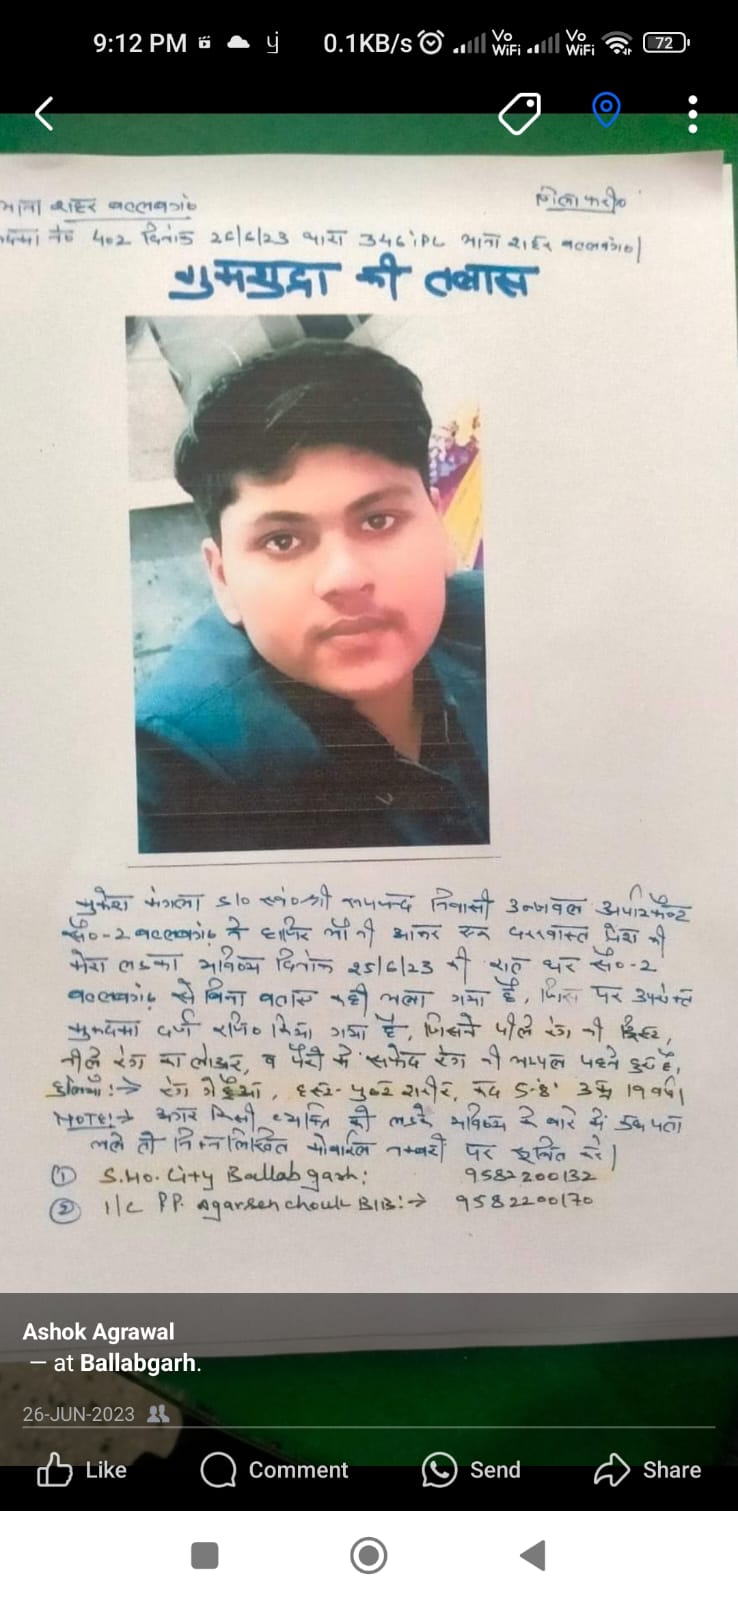 9:12 PM
0.1KB/s
Vo WiFi
Vo WiFi
72
थाना शहर बल्लबगढ़
जिला फरी०
नं० 402 दिनांक 26/6/23 धारा 346 IPC थाना शहर बल्लबगढ़।
गुमशुदा की तलाश
मुकेश मंगला S/O स्व०श्री रूपचन्द निवासी उज्जवल अपार्टमेन्ट
सै०-2 बल्लबगढ़ ने हाजिर चौकी आकर एक दरखास्त पेश की
मेरा लडका भविष्य दिनांक 25/6/23 की रात घर सै०-2
बल्लबगढ़ से बिना बताए कही चला गया है, जिस पर उपरोक्त
मुकदमा दर्ज रजि० किया गया है, जिसने पीले रंग की टिशर्ट,
नीले रंग का लोअर, व पैरो मे सफेद रंग की चप्पल पहने हुए है,
हुलिया :→ रंग गेहुँआ, शरीर, कद 5'8" उम्र 19 वर्ष।
NOTE:→ अगर किसी व्यक्ति को लडके भविष्य के बारे में कुछ पता
चले तो निम्नलिखित मोबाईल नम्बरों पर सूचित करे।
① S.HO. City Ballabgarh: 9582200132
② I/C PP. Agarsen chouk BLB:→ 9582200170
Ashok Agrawal
— at Ballabgarh.
26-JUN-2023
Like
Comment
Send
Share